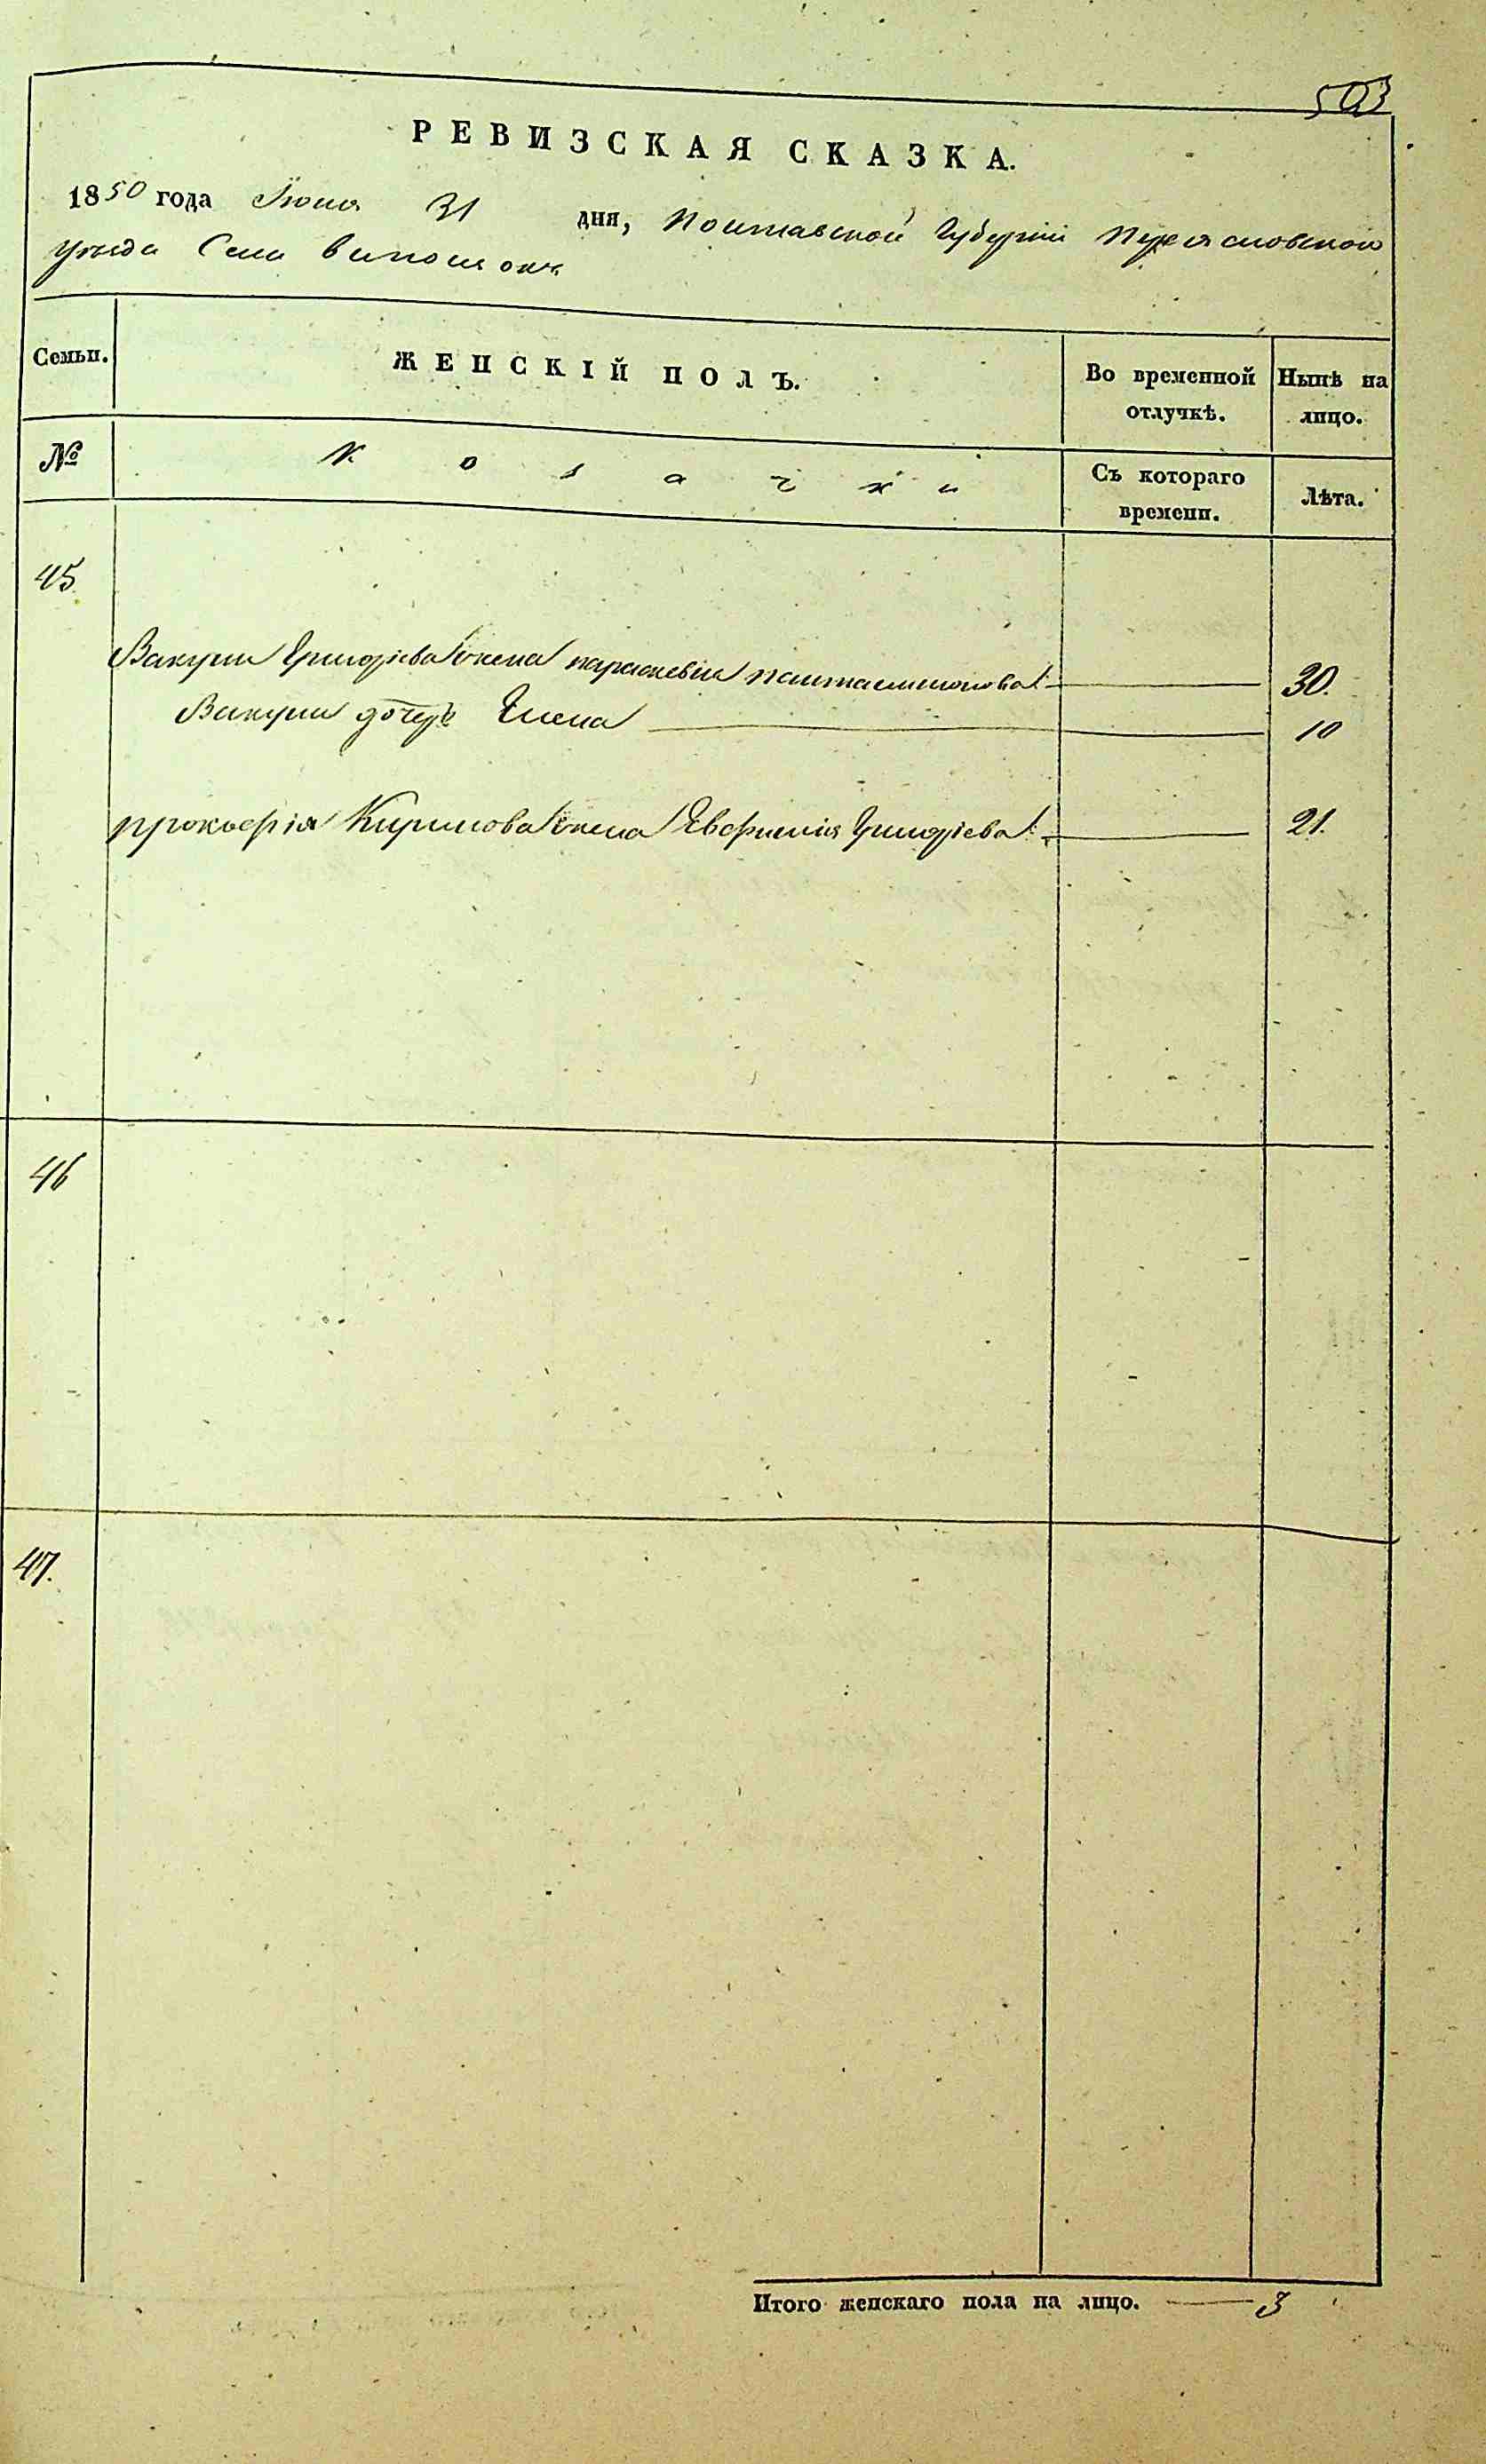 503
РЕВИЗСКАЯ СКАЗКА.
1850 года Июня 31 дня, Полтавской Губерніи Переясловского
уезда Села
Семьи. ЖЕНСКІЙ ПОЛЪ. Во временной отлучкѣ. Нынѣ на лицо.
№ Козачки Съ котораго времени. Лѣта.
45
Вакулы Григорієва жена Параскевія Пантелимонова 30.
Вакулы дочерь Елена 10
Прокофія Кирилова жена Евфимія Григорієва 21.
46
47.
Итого женскаго пола на лицо. 3